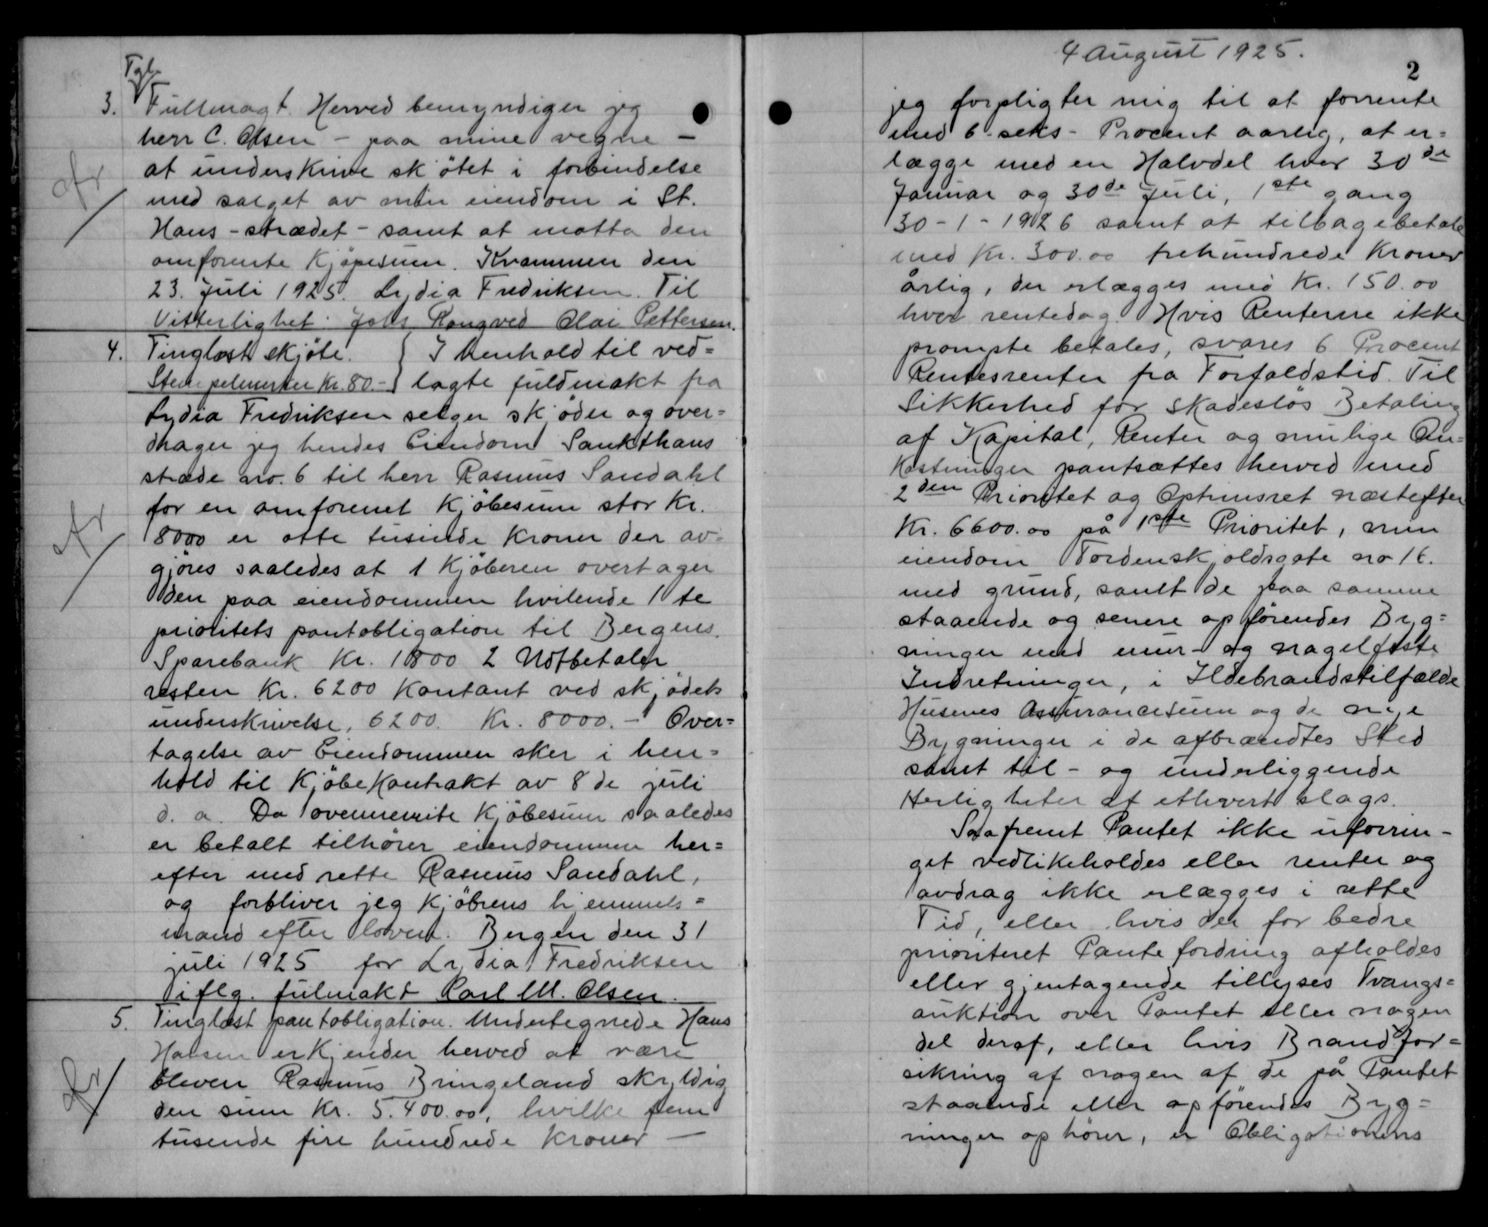 Tgl.
3. Fullmagt. Herved bemyndiger jeg
herr C. Olsen - paa mine vegne -
at underskrive skjötet i forbindelse
med salget av min eiendom i St.
Hans-strædet - samt at motta den
omforente Kjøpesum. Kvammen den
23. Juli 1925. Lydia Fredriksen. Til
Vitterlighet: Johs. Rongved Olai Pettersen.
4. Tinglæst skjöte. I henhold til ved=
Stempelmerker Kr. 80.- lagte fuldmakt fra
Lydia Fredriksen selger skjöder og over=
drager jeg hendes Eiendom Sankthans
stræde no. 6 til herr Rasmus Sandahl
for en omforenet Kjöbesum stor Kr.
8000 er otte tusinde Kroner der av=
gjöres saaledes at 1 Kjöberen overtager
den paa eiendommen hvilende 1 te
prioritets pantobligation til Bergens
Sparebank Kr. 1800 2 Utbetaler
resten Kr. 6200 Kontant ved skjödets
underskrivelse, 6200 Kr. 8000.- Over=
tagelse av Eiendommen sker i hen=
hold til Kjöbekontrakt av 8 de juli
d. a. Da ovennevnte Kjöbesum saaledes
er betalt tilhörer eiendommen her=
efter med rette Rasmus Sandahl,
og forbliver jeg Kjöbrens hjemmels=
mand efter loven. Bergen den 31
juli 1925 for Lydia Fredriksen
iflg. fulmakt Carl M. Olsen.
5. Tinglæst pantobligation. Undertegnede Hans
Hansen erkjender herved at være
bleven Rasmus Bringeland skyldig
den sum Kr. 5.400.00, hvilke fem
tusende fire hundrede Kroner —
4 August 1925.
2
jeg forpligter mig til at forrente
med 6 - seks - Procent aarlig, at er=
lægge med en Halvdel hver 30 de
Januar og 30 de Juli, 1 ste gang
30-1-1926 samt at tilbagebetale
med Kr. 300.00 trehundrede Kroner
årlig, der erlægges med Kr. 150.00
hver rentedag. Hvis Renterne ikke
prompte betales, svares 6 Procent
Rentesrenter fra Forfaldstid. Til
Sikkerhed for skadeslös Betaling
af Kapital, Renter og mulige Om=
kostninger pantsættes herved med
2 den Prioritet og Optrinsret næstefter
Kr. 6600.00 på 1ste Prioritet, min
eiendom Tordenskjoldsgate no 16.
med grund, samt de paa samme
staaende og senere opførendes Byg=
ninger med mur- og nagelfaste
Indretninger, i Ildebrandstilfælde
Husenes Assurancesum og de nye
Bygninger i de afbrændtes Sted
samt til- og underliggende
Herligheter af ethvert slags.
Saafremt Pantet ikke uforrin-
get vedlikeholdes eller renter og
avdrag ikke erlægges i rette
Tid, eller hvis der for bedre
prioriteret Pantefordring afholdes
eller gjentagende tillyses Tvangs=
auktion over Pantet eller nogen
del deraf, eller hvis Brandfor=
sikring af nogen af de på Pantet
staaende eller opförendes Byg=
ninger ophörer, er Obligationens